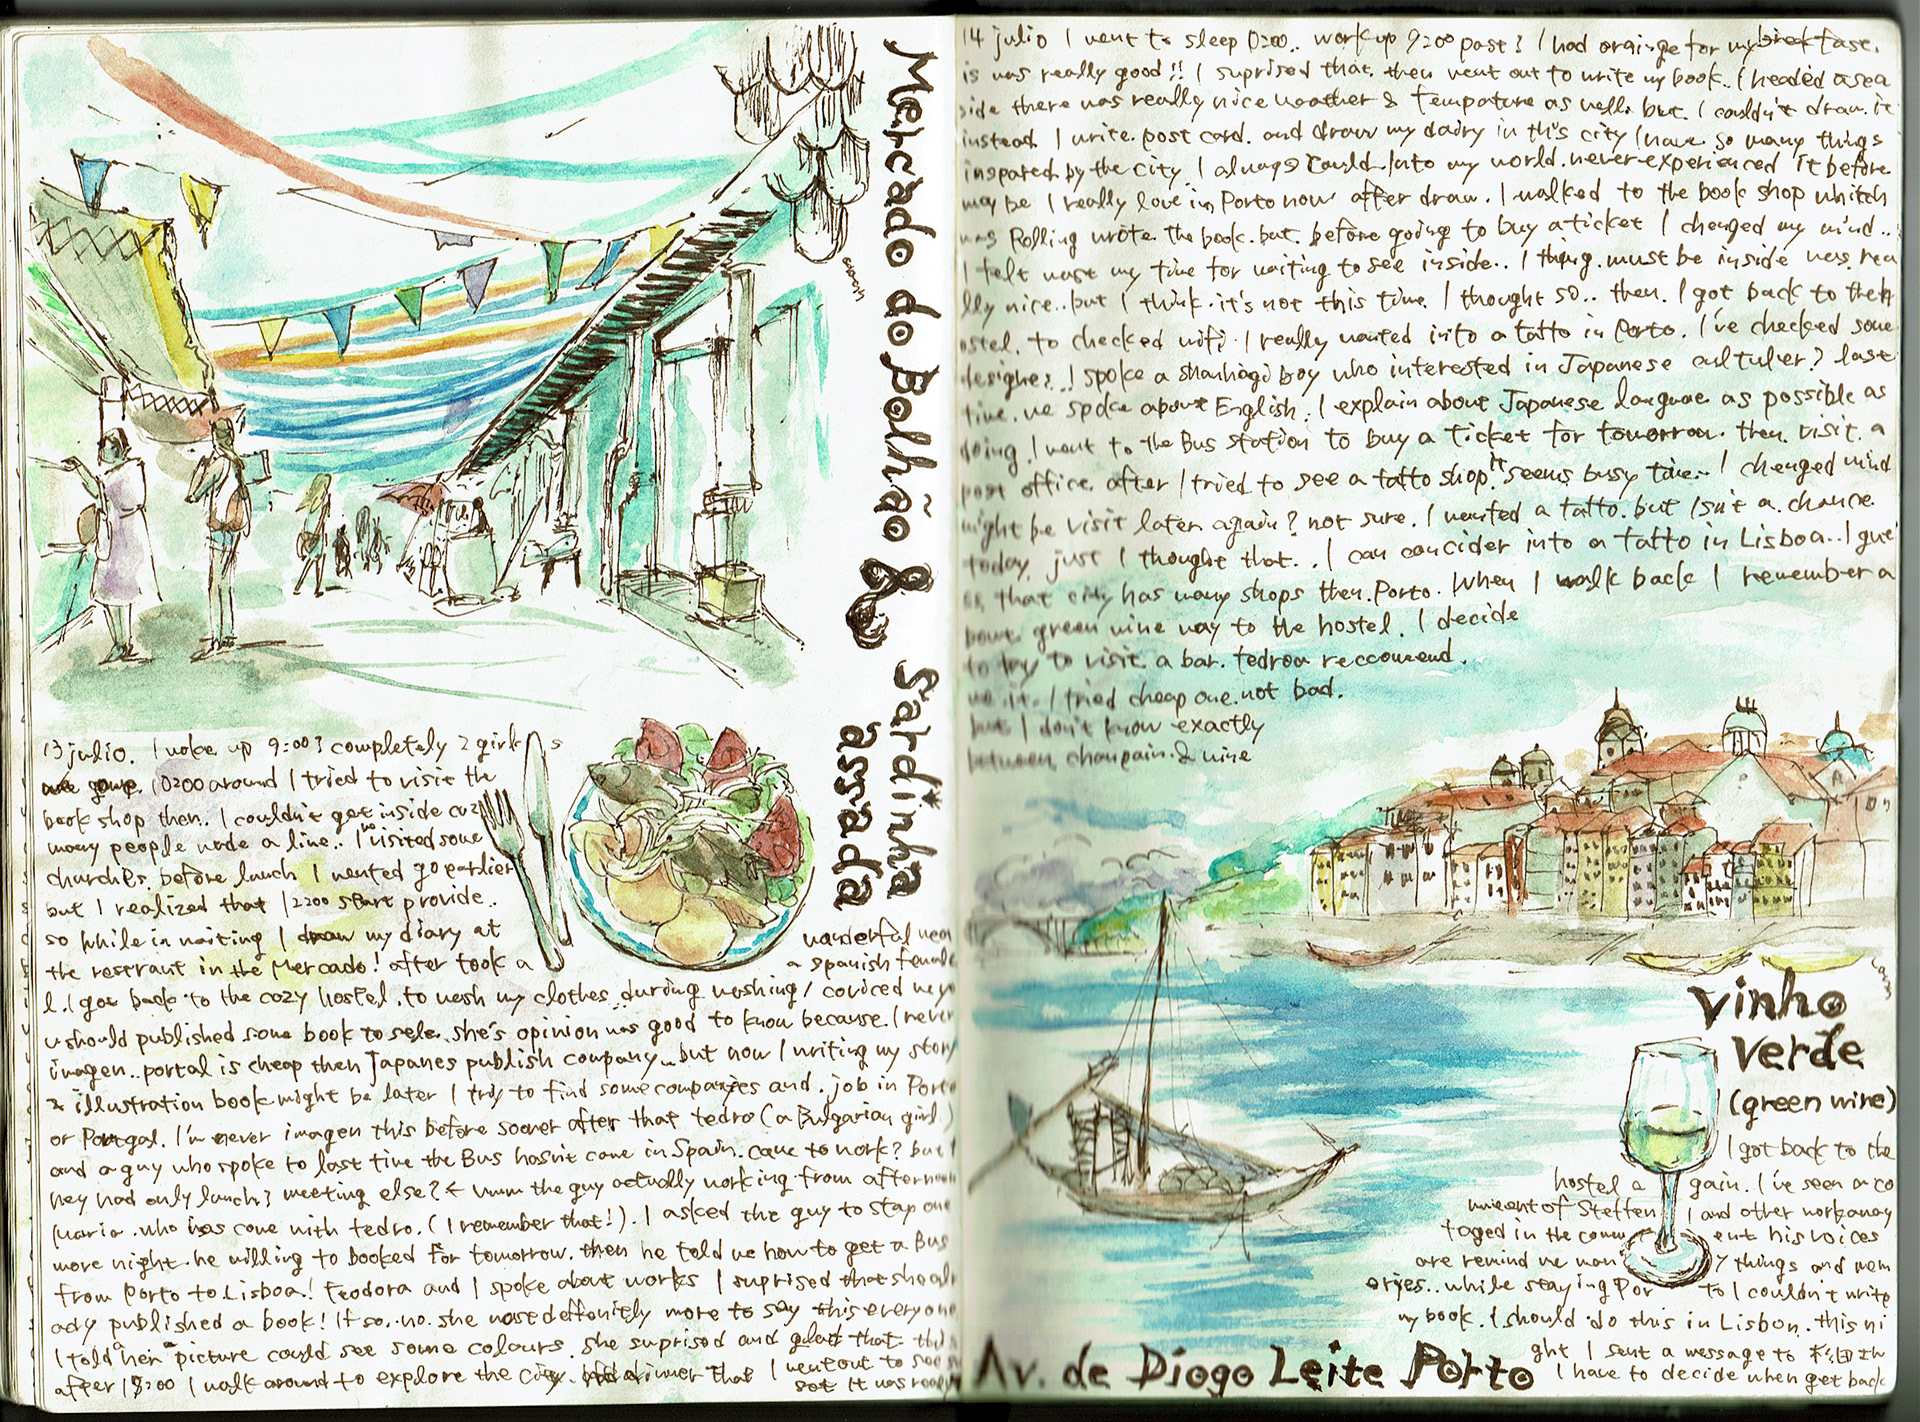 Mercado do Bolhão &
Sardinha
assada
13 julio. I woke up 9:00? completely 2 girls
are gone. 10:00 around I tried to visit the
book shop then.. I couldn't get inside coz
many people made a line.. I visited some
churches. before lunch I wanted go earlier
but I realized that 12:00 start provide..
so while in waiting I draw my diary at
the restraunt in the Mercado! after took a
wanderful mea
l. I got back to the cozy hostel. to wash my clothes. during washing
a spanish female
coviced me yo
u should published some book to sele. she's opinion was good to know because I never
imagen.. portal is cheap then Japanes publish company... but now I writing my story
& illustration book might be later I try to find some companyes and. job in Porto
or Portgal. I'm never imagen this before sooner after that tedro (a Bulgarian girl.)
and a guy who spoke to last time the Bus hasn't come in Spain. came to work? but t
hey had only lunch? meeting else? ← umm the guy actually working from afternoon
Maria. who was come with tedro. (I remember that!). I asked the guy to stay one
more night. he willing to booked for tomorrow. then he told me how to get a Bus
from Porto to Lisboa! Teodora and I spoke about works I suprised that she alr
ady published a book! If so.. no. she most deffinitely more to say this everyone
I told her a picture could see some colours. she suprised and glad that this
after 18:00 I walk around to explore the city. dinner that I went out to see
it was really
14 julio I went to sleep 0:00.. work up 9:00 past? I had orainge for my breakfast.
is was really good!! I suprised that. then went out to write my book.. I headed a sea
side there was really nice weather & tempature as well. but. I couldn't draw. it
instead. I write. post card. and draw my dairy in this city I have so many things
inspared by the city. I always could into my world. never experienced it before
may be I really love in Porto now after draw. I walked to the book shop whitch
was Rolling wrote. the book. but. before going to buy a ticket I chenged my mind..
I felt wast my time for waiting to see inside.. I thing. must be inside was rea
lly nice.. but I think. it's not this time. I thought so.. then. I got back to the h
ostel. to checked wifi. I really wanted into a tatto in Porto. I've checked some
designer.. I spoke a shanhagi boy who interested in Japanese cultuber? last
time. we spoke about English. I explain about Japanese languae as possible as
doing. I went to the Bus station to buy a ticket for tomorrow. then. visit. a
post office. after I tried to see a tatto shop. It seems busy time.. I chenged mind
might be visit later again? not sure. I wanted a tatto. but Isn't a chance
today. just I thought that.. I can concider into a tatto in Lisboa.. I gue
ss that city has many shops then. Porto. When I walk back I remember a
bout green wine way to the hostel. I decide
to try to visit a bar. tedroa reccomend.
me it. I tried cheap one. not bad.
but I don't know exactly
between champain & wine
vinho
verde
(green wine)
I got back to the
hostel again. I've seen a co
mment of Steffen I and other workaway
taged in the comment his voices
are remind me many things and mem
oryes.. while staying Porto I couldn't write
my book. I should do this in Lisbon. this ni
ght I sent a message to
I have to decide when get back
Av. de Diogo Leite Porto